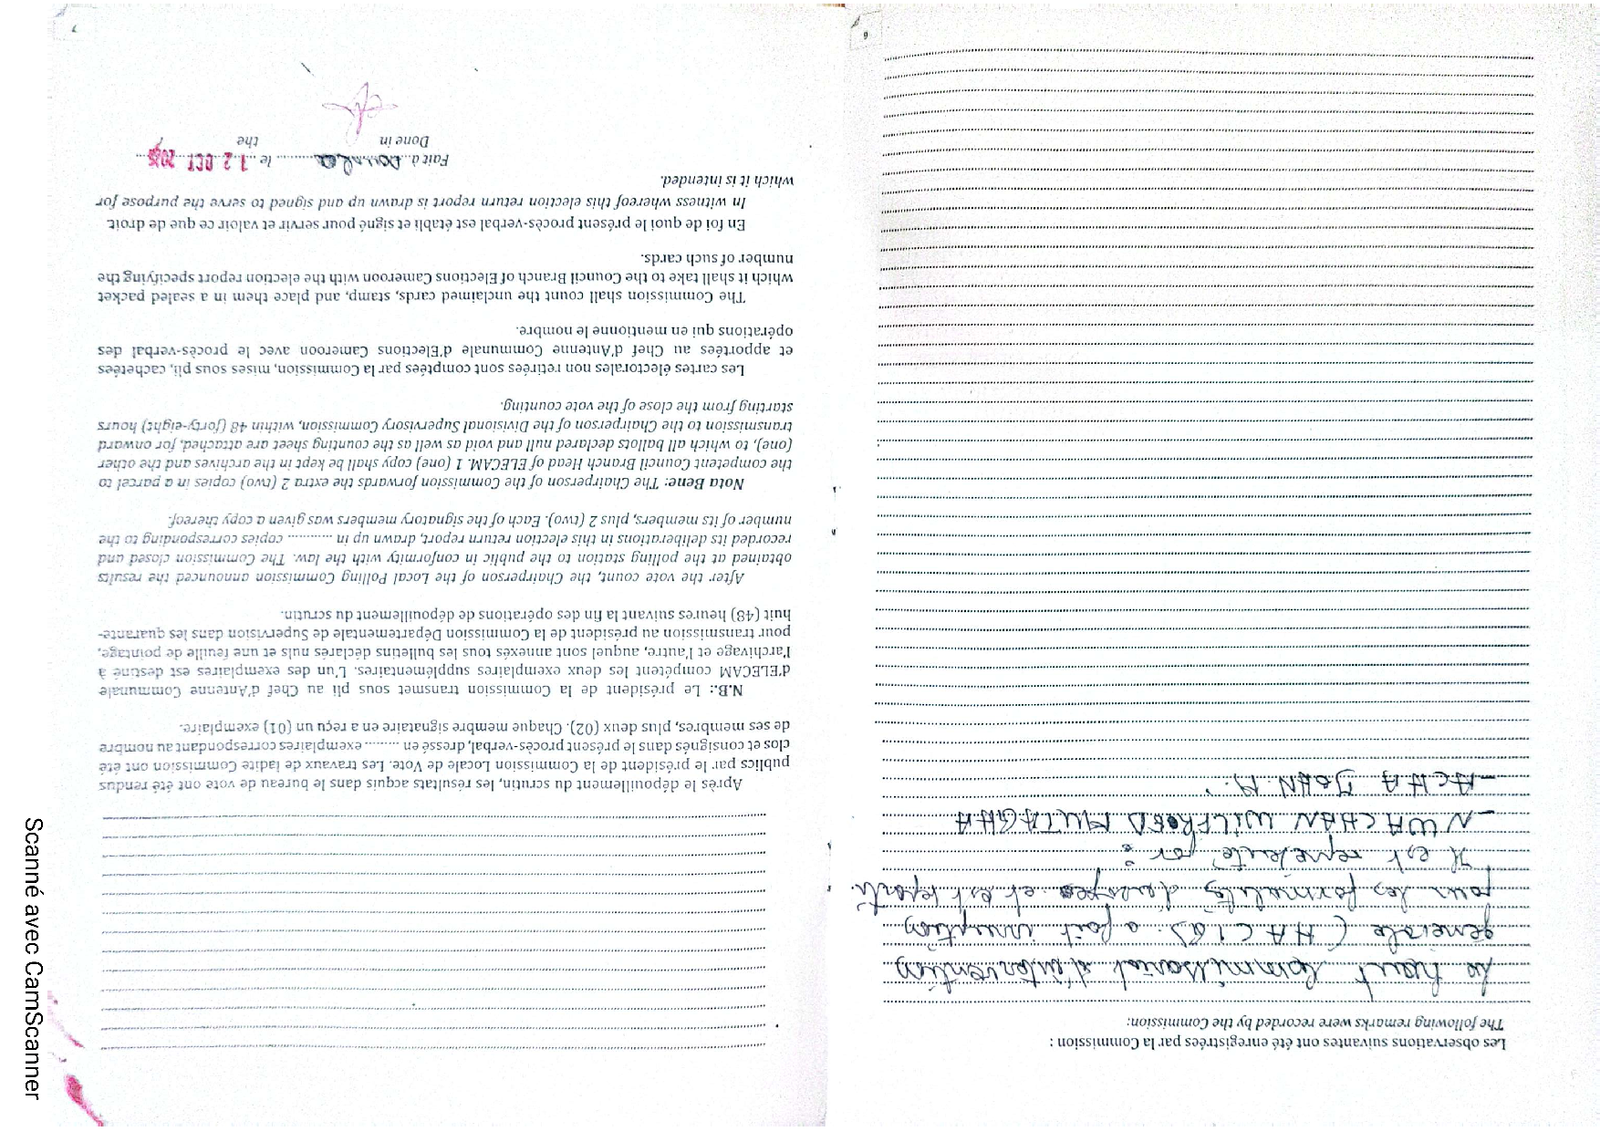 6
Les observations suivantes ont été enregistrées par la Commission :
The following remarks were recorded by the Commission:
Le haut Commissariat d'intervention
generale (HACIG). a fait irruption
pour les formalités d'usages et est reparti.
Il est représenté par :
- NWACHAN WILFRED MUTAGHA
- ACHA JOHN M.
7
Après le dépouillement du scrutin, les résultats acquis dans le bureau de vote ont été rendus
publics par le président de la Commission Locale de Vote. Les travaux de ladite Commission ont été
clos et consignés dans le présent procès-verbal, dressé en ......... exemplaires correspondant au nombre
de ses membres, plus deux (02). Chaque membre signataire en a reçu un (01) exemplaire.
N.B.: Le président de la Commission transmet sous pli au Chef d'Antenne Communale
d'ELECAM compétent les deux exemplaires supplémentaires. L'un des exemplaires est destiné à
l'archivage et l'autre, auquel sont annexés tous les bulletins déclarés nuls et une feuille de pointage,
pour transmission au président de la Commission Départementale de Supervision dans les quarante-
huit (48) heures suivant la fin des opérations de dépouillement du scrutin.
After the vote count, the Chairperson of the Local Polling Commission announced the results
obtained at the polling station to the public in conformity with the law. The Commission closed and
recorded its deliberations in this election return report, drawn up in ........... copies corresponding to the
number of its members, plus 2 (two). Each of the signatory members was given a copy thereof.
Nota Bene: The Chairperson of the Commission forwards the extra 2 (two) copies in a parcel to
the competent Council Branch Head of ELECAM. 1 (one) copy shall be kept in the archives and the other
(one), to which all ballots declared null and void as well as the counting sheet are attached, for onward
transmission to the Chairperson of the Divisional Supervisory Commission, within 48 (forty-eight) hours
starting from the close of the vote counting.
Les cartes électorales non retirées sont comptées par la Commission, mises sous pli, cachetées
et apportées au Chef d'Antenne Communale d'Elections Cameroon avec le procès-verbal des
opérations qui en mentionne le nombre.
The Commission shall count the unclaimed cards, stamp, and place them in a sealed packet
which it shall take to the Council Branch of Elections Cameroon with the election report specifying the
number of such cards.
En foi de quoi le présent procès-verbal est établi et signé pour servir et valoir ce que de droit.
In witness whereof this election return report is drawn up and signed to serve the purpose for
which it is intended.
Fait à Douala le 12 OCT 2025
Done in the
Scanné avec CamScanner